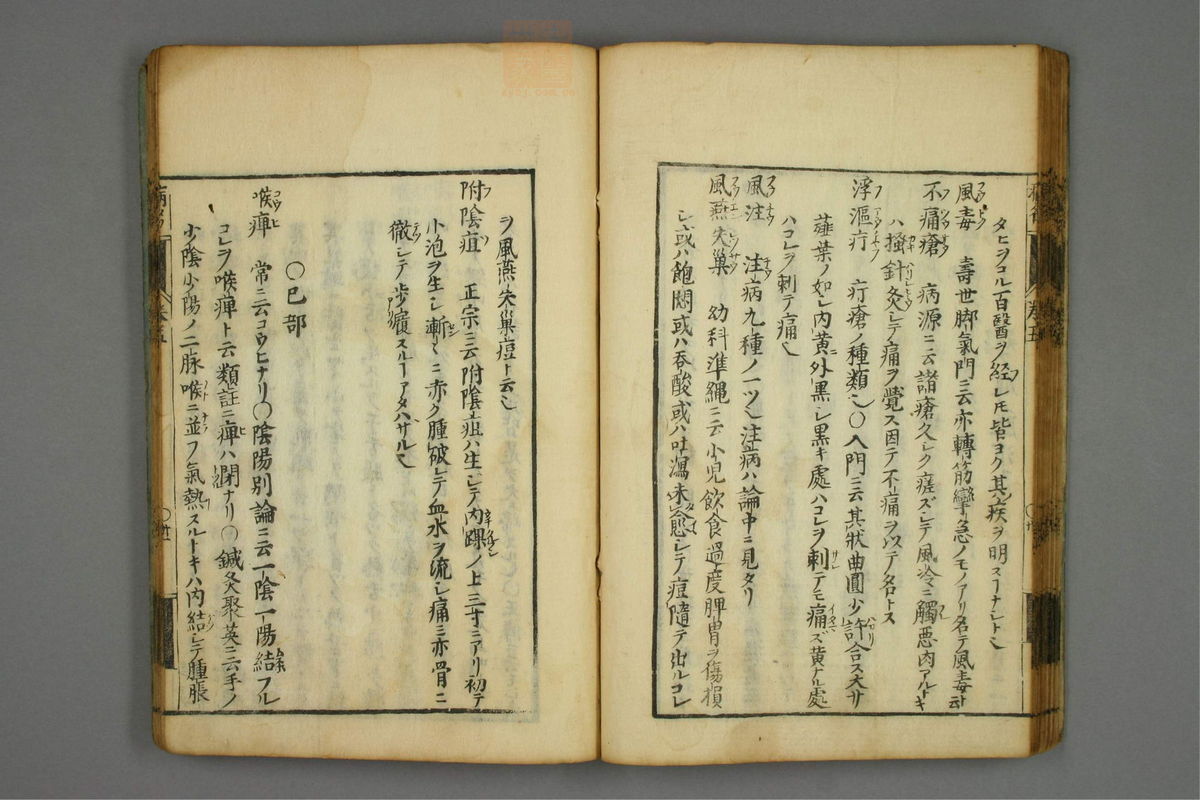 タヒヲコル百醫ヲ經レモ皆ヨク其疾ヲ明スーナシトゾ
風毒 壽世脚氣門ニ云亦轉筋攣急ノモノアリ名テ風毒ト云
不痛瘡 病源ニ云諸瘡久シク瘥ズシテ風冷ニ觸悪肉アルトキ
ハ搔針灸シテ痛ヲ覺ス因テ不痛ヲ以テ名トス
浮漚疔 疔瘡ノ種類〇入門ニ云其狀曲圓少許合ス大サ
薤葉ノ如シ内黄ニ外黒シ黒キ處ハコレヲ刺テモ痛ズ黄ナル處
ハコレヲ刺テ痛
風注 注病九種ノ一ツ注病ハ論中ニ見タリ
風燕失巢 幼科準繩ニ云小児飲食過度脾胃ヲ傷損
シ或ハ飽悶或ハ吞酸或ハ吐瀉未愈シテ痘隨テ出ルコレ
ヲ風燕失巢痘ト云
附陰疽 正宗ニ云附陰疽ハ生シテ内踝ノ上三寸ニアリ初テ
小泡ヲ生シ漸々ニ赤ク腫破レテ血水ヲ流シ痛ミ亦骨ニ
徹シテ歩履スルーアタハザル
〇已部
喉痺 常ニ云コウヒナリ〇陰陽別論ニ云一陰一陽結フル
コレヲ喉痺ト云類註ニ痺ハ閉ナリ〇鍼灸聚英ニ云手ノ
少陰少陽ノ二脉喉ニ並フ氣熱スルトキハ内結シテ腫脹
卷五